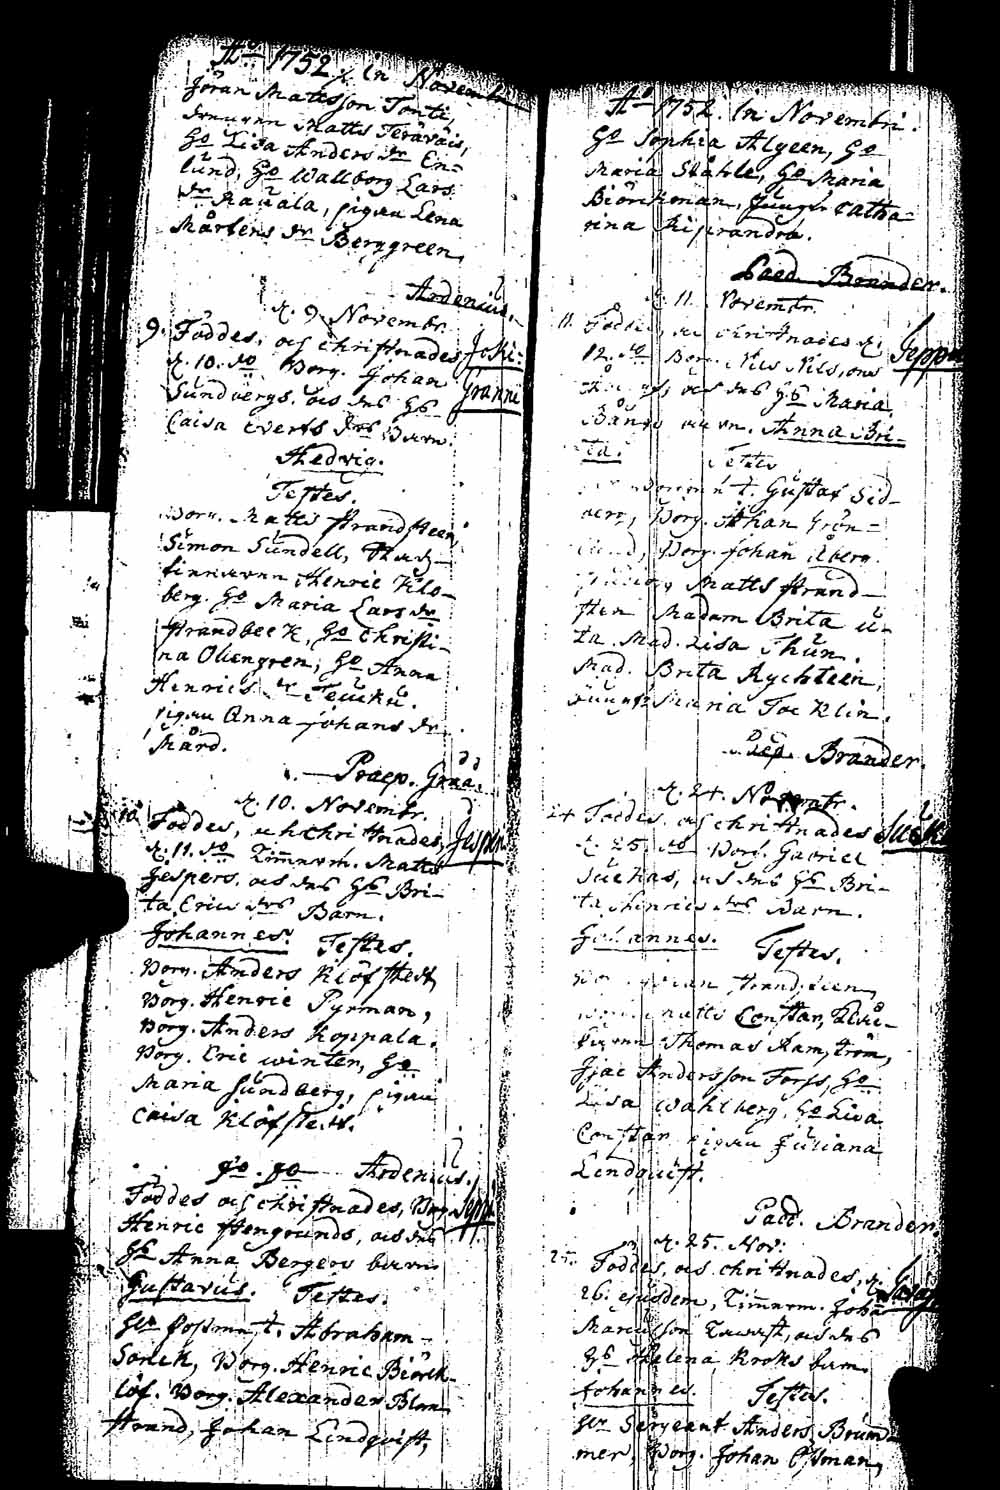 Ao 1752 In Novembri
Jöran Matsson Tonti,
Matts Teräväis,
Go Lisa Anders dr En-
lund, Go Wallborg Lars
dr Mavala, pigan Lena
Mårtens dr Berggreen,
Ardenius.
d. 9 Novembr.
9. Föddes, och christnades Joki-
d. 10. do Borg. Johan Granni
Sundbergs, och des hs
Caisa Everts drs Barn.
Hedwig.
Testes.
Borg. Matts Strandsteen,
Simon Sundell,
Henric Klo-
berg. Go Maria Lars dr
Strandbeck, Go Christi-
na Olengren, Go Anna
Henrics dr Teucku.
pigan Anna Johans dr
Mård.
Praep. Gråå.
d. 10. Novembr.
10. Föddes, och christnades, Jespers
d. 11. do Timmerm. Matts
Jespers, och des hs Bri-
ta Erics drs Barn.
Johannes. Testes.
Borg. Anders Klöfstedt,
Borg. Henric Pyrman,
Borg. Anders Koppala.
Borg. Eric Winter, Go
Maria Sundberg, pigan
Caisa Klöfstedt.
do. do Ardenius.
Föddes och christnades, Borg. Seppä
Henric Stengrunds, och des
hs Anna Bergers barn
Gustavus. Testes.
Abraham
Sonck, Borg. Henric Biörk-
löf. Borg. Alexander Blom
Strand, Johan Lindqvist,
Ao 1752. In Novembri.
Go Sophia Algeen, Go
Maria Ståhle, Go Maria
Biörkman, Jungfr Catha-
rina Kiprandra.
Paed. Brander.
d. 11. Novembr.
11. Föddes, och christnades d. Seppä
12. do Borg. Nils Nilssons
och des hs Maria
Bångs barn. Anna Bri-
ta.
Testes
Gustaf Sid-
Borg. Johan Grön-
lund, Borg. Johan Åberg.
Matts Strand-
sten Madam Brita U-
ta. Mad. Lisa Thun.
Mad. Brita Rychteen,
Jungfr Maria Tocklin.
Brander.
d. 24. Novembr.
24 Föddes och christnades Suck
d. 25. do Borg. Gabriel
Suckas, och des hs Bri-
ta Henrics drs Barn.
Johannes. Testes.
Matts Constar,
Thomas Ramström,
Isac Andersson Forss, Go
Lisa Wahlberg. Go Lisa
Constar pigan Juliana
Lindquist.
Paed. Brander.
d. 25. Nov:
25. Föddes, och christnades, d.
26. ejusdem, Timmerm. Johan
och des
hs Helena Kroks barn
Johannes. Testes.
Hr Sergeant Anders Brum-
mer, Borg. Johan Ossman,